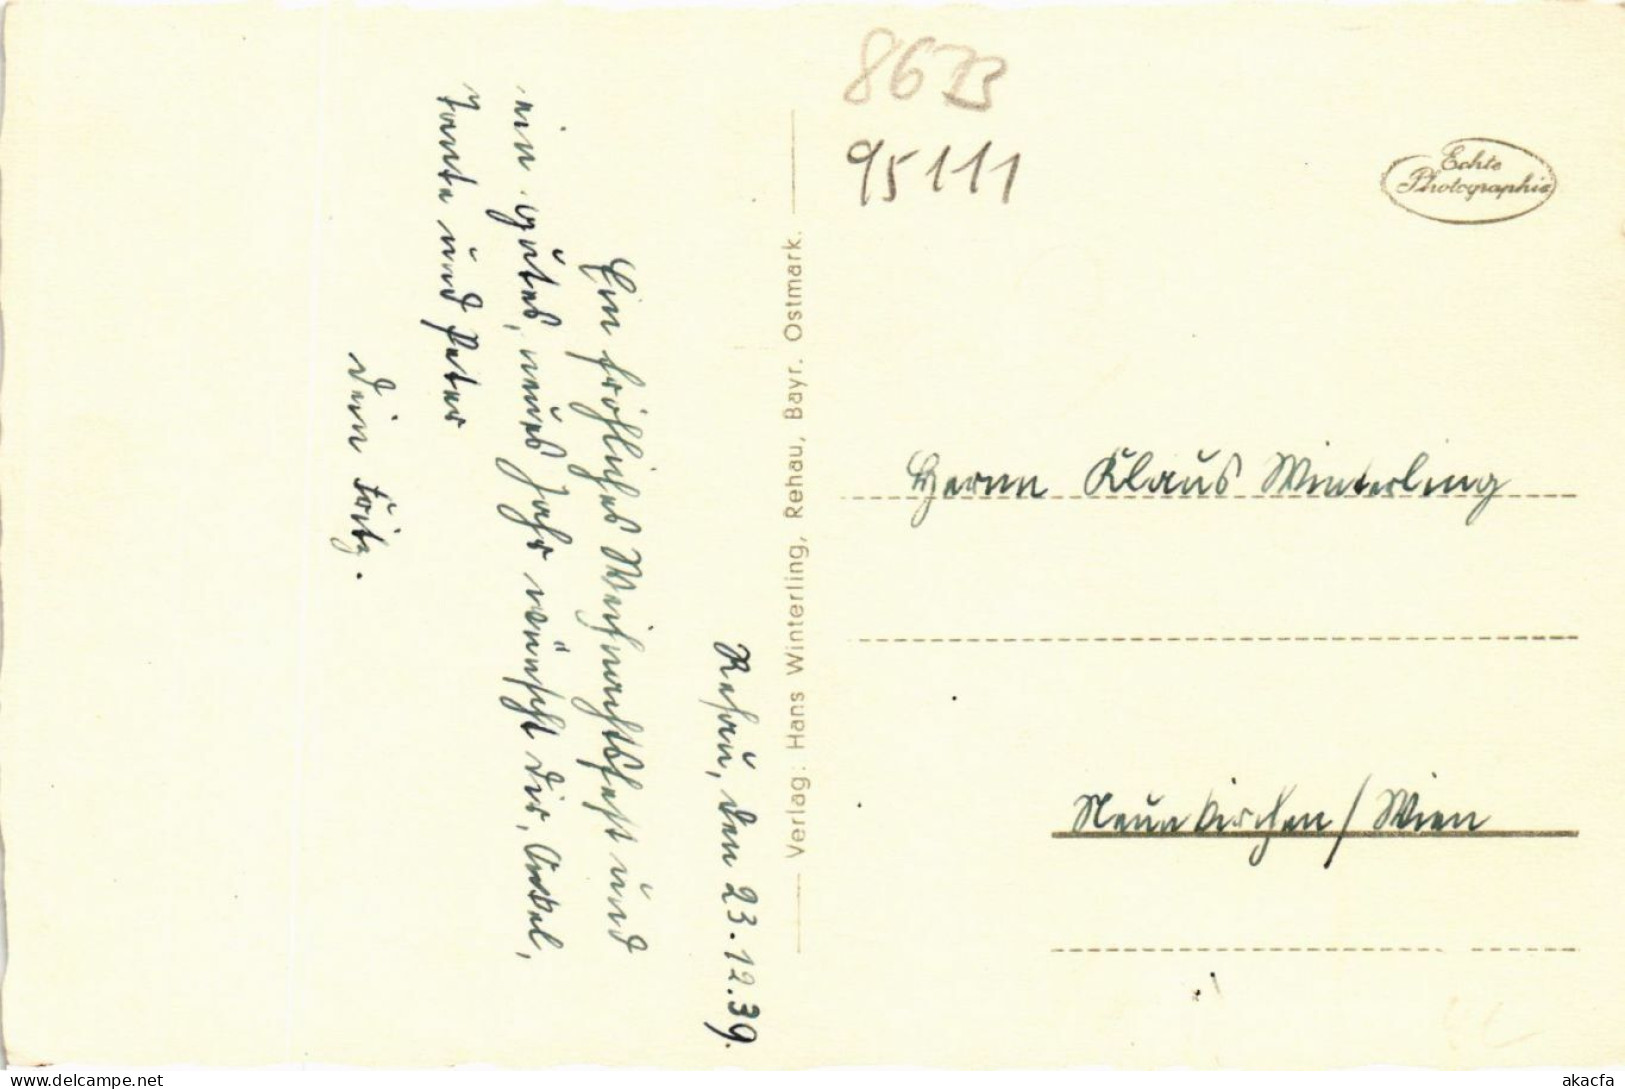 Rehau, den 23.12.39.
Ein fröhliches Weihnachtsfest und
ein gutes, neues Jahr wünscht dir, Onkel,
Tante und Peter
Dein Fritz.
Verlag: Hans Winterling, Rehau, Bayr. Ostmark.
8673
95111
Echte
Photographie
Herrn Klaus Winterling
Neunkirchen / Wien
akacfa